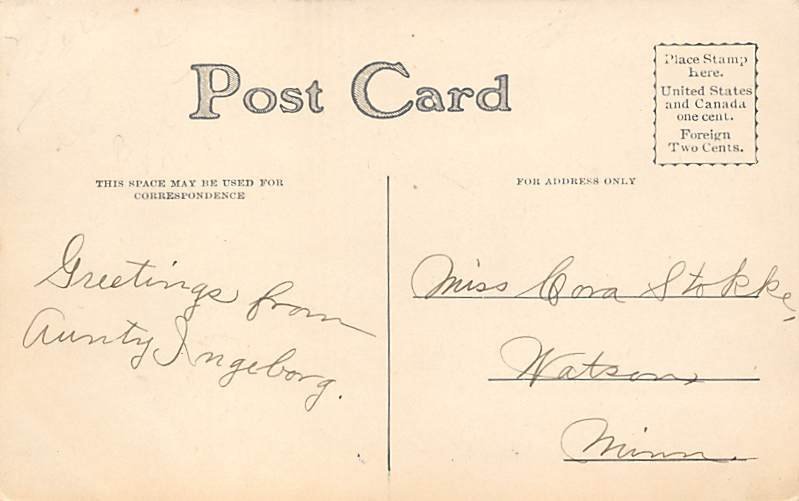 Post Card
Place Stamp
here.
United States
and Canada
one cent.
Foreign
Two Cents.
THIS SPACE MAY BE USED FOR
CORRESPONDENCE
Greetings from
Aunty Ingeborg.
FOR ADDRESS ONLY
Miss Cora Stokke,
Watson,
Minn.